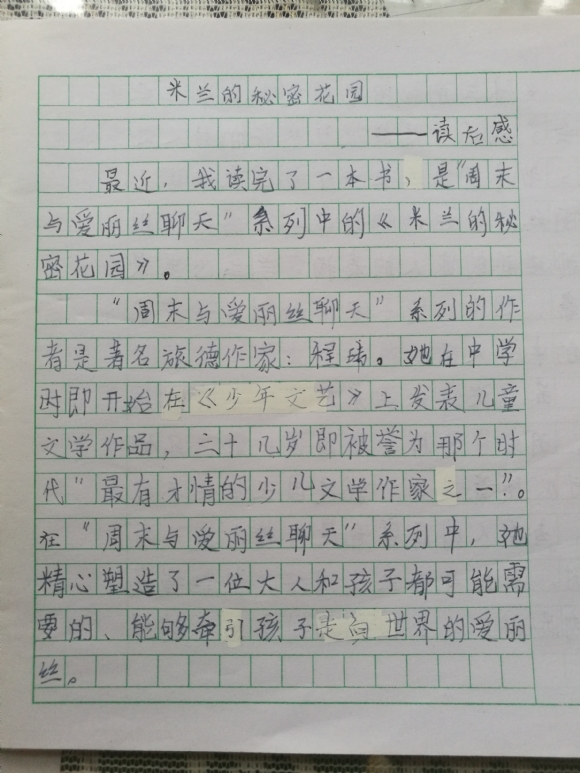 米兰的秘密花园
——读后感
最近，我读完了一本书，是“周末
与爱丽丝聊天”系列中的《米兰的秘
密花园》。
“周末与爱丽丝聊天”系列的作
者是著名旅德作家：程玮。她在中学
时即开始在《少年文艺》上发表儿童
文学作品，三十几岁即被誉为那个时
代“最有才情的少儿文学作家之一”。
在“周末与爱丽丝聊天”系列中，她
精心塑造了一位大人和孩子都可能需
要的、能够牵引孩子走向世界的爱丽
丝。